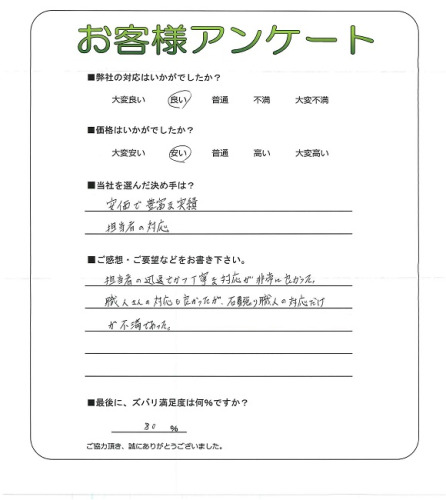 お客様アンケート
■弊社の対応はいかがでしたか？
大変良い 良い 普通 不満 大変不満
■価格はいかがでしたか？
大変安い 安い 普通 高い 大変高い
■当社を選んだ決め手は？
安価で豊富な実績
担当者の対応
■ご感想・ご要望などをお書き下さい。
担当者の迅速でかつ丁寧な対応が非常に良かった。
職人さんの対応も良かったが、石張り職人の対応だけ
が不満であった。
■最後に、ズバリ満足度は何%ですか？
80 %
ご協力頂き、誠にありがとうございました。